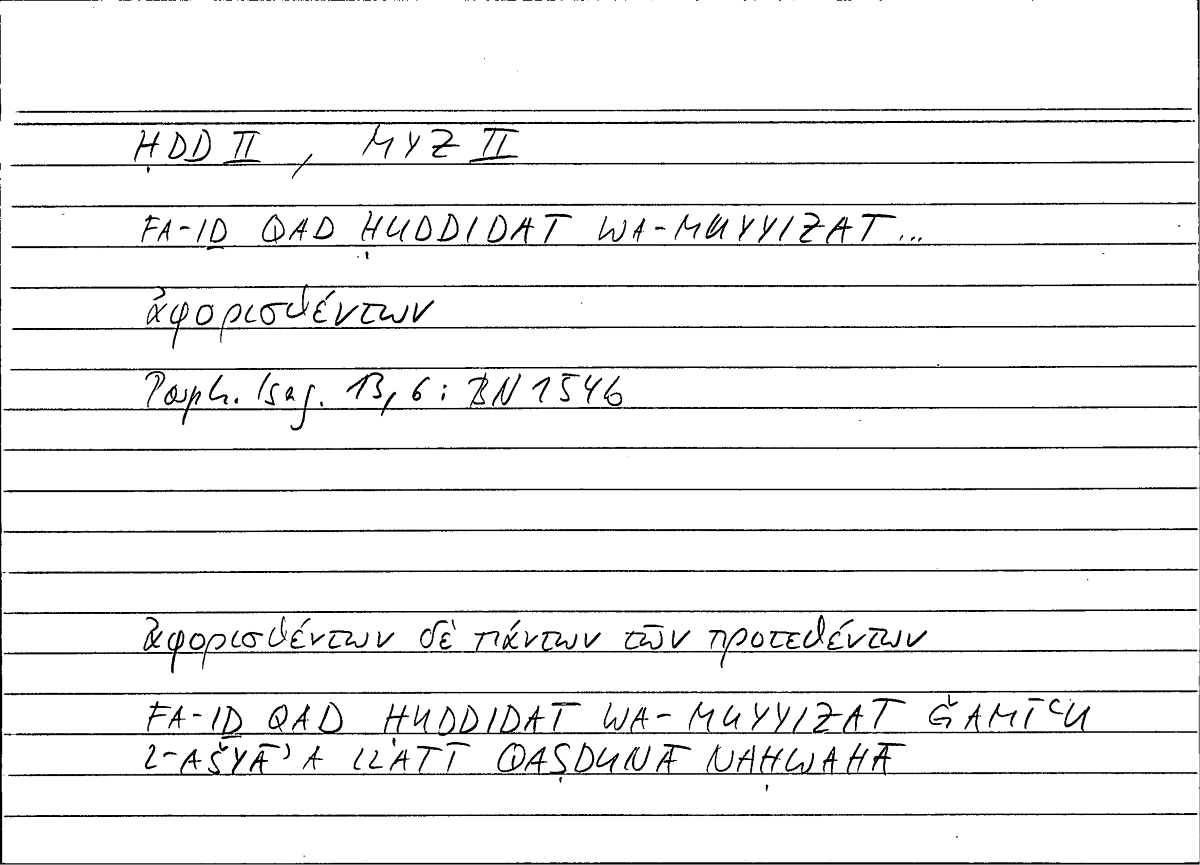 ḤDD II , MYZ II
FA-IḎ QAD ḤUDDIDAT WA-MUYYIZAT...
ἀφορισθέντων
Porph. Isag. 13,6 : BN 154b
ἀφορισθέντων δὲ πάντων τῶν προτεθέντων
FA-IḎ QAD ḤUDDIDAT WA-MUYYIZAT ǦAMĪʿU
L-AŠYĀʾA LLATĪ QAṢDUNĀ NAḤWAHĀ